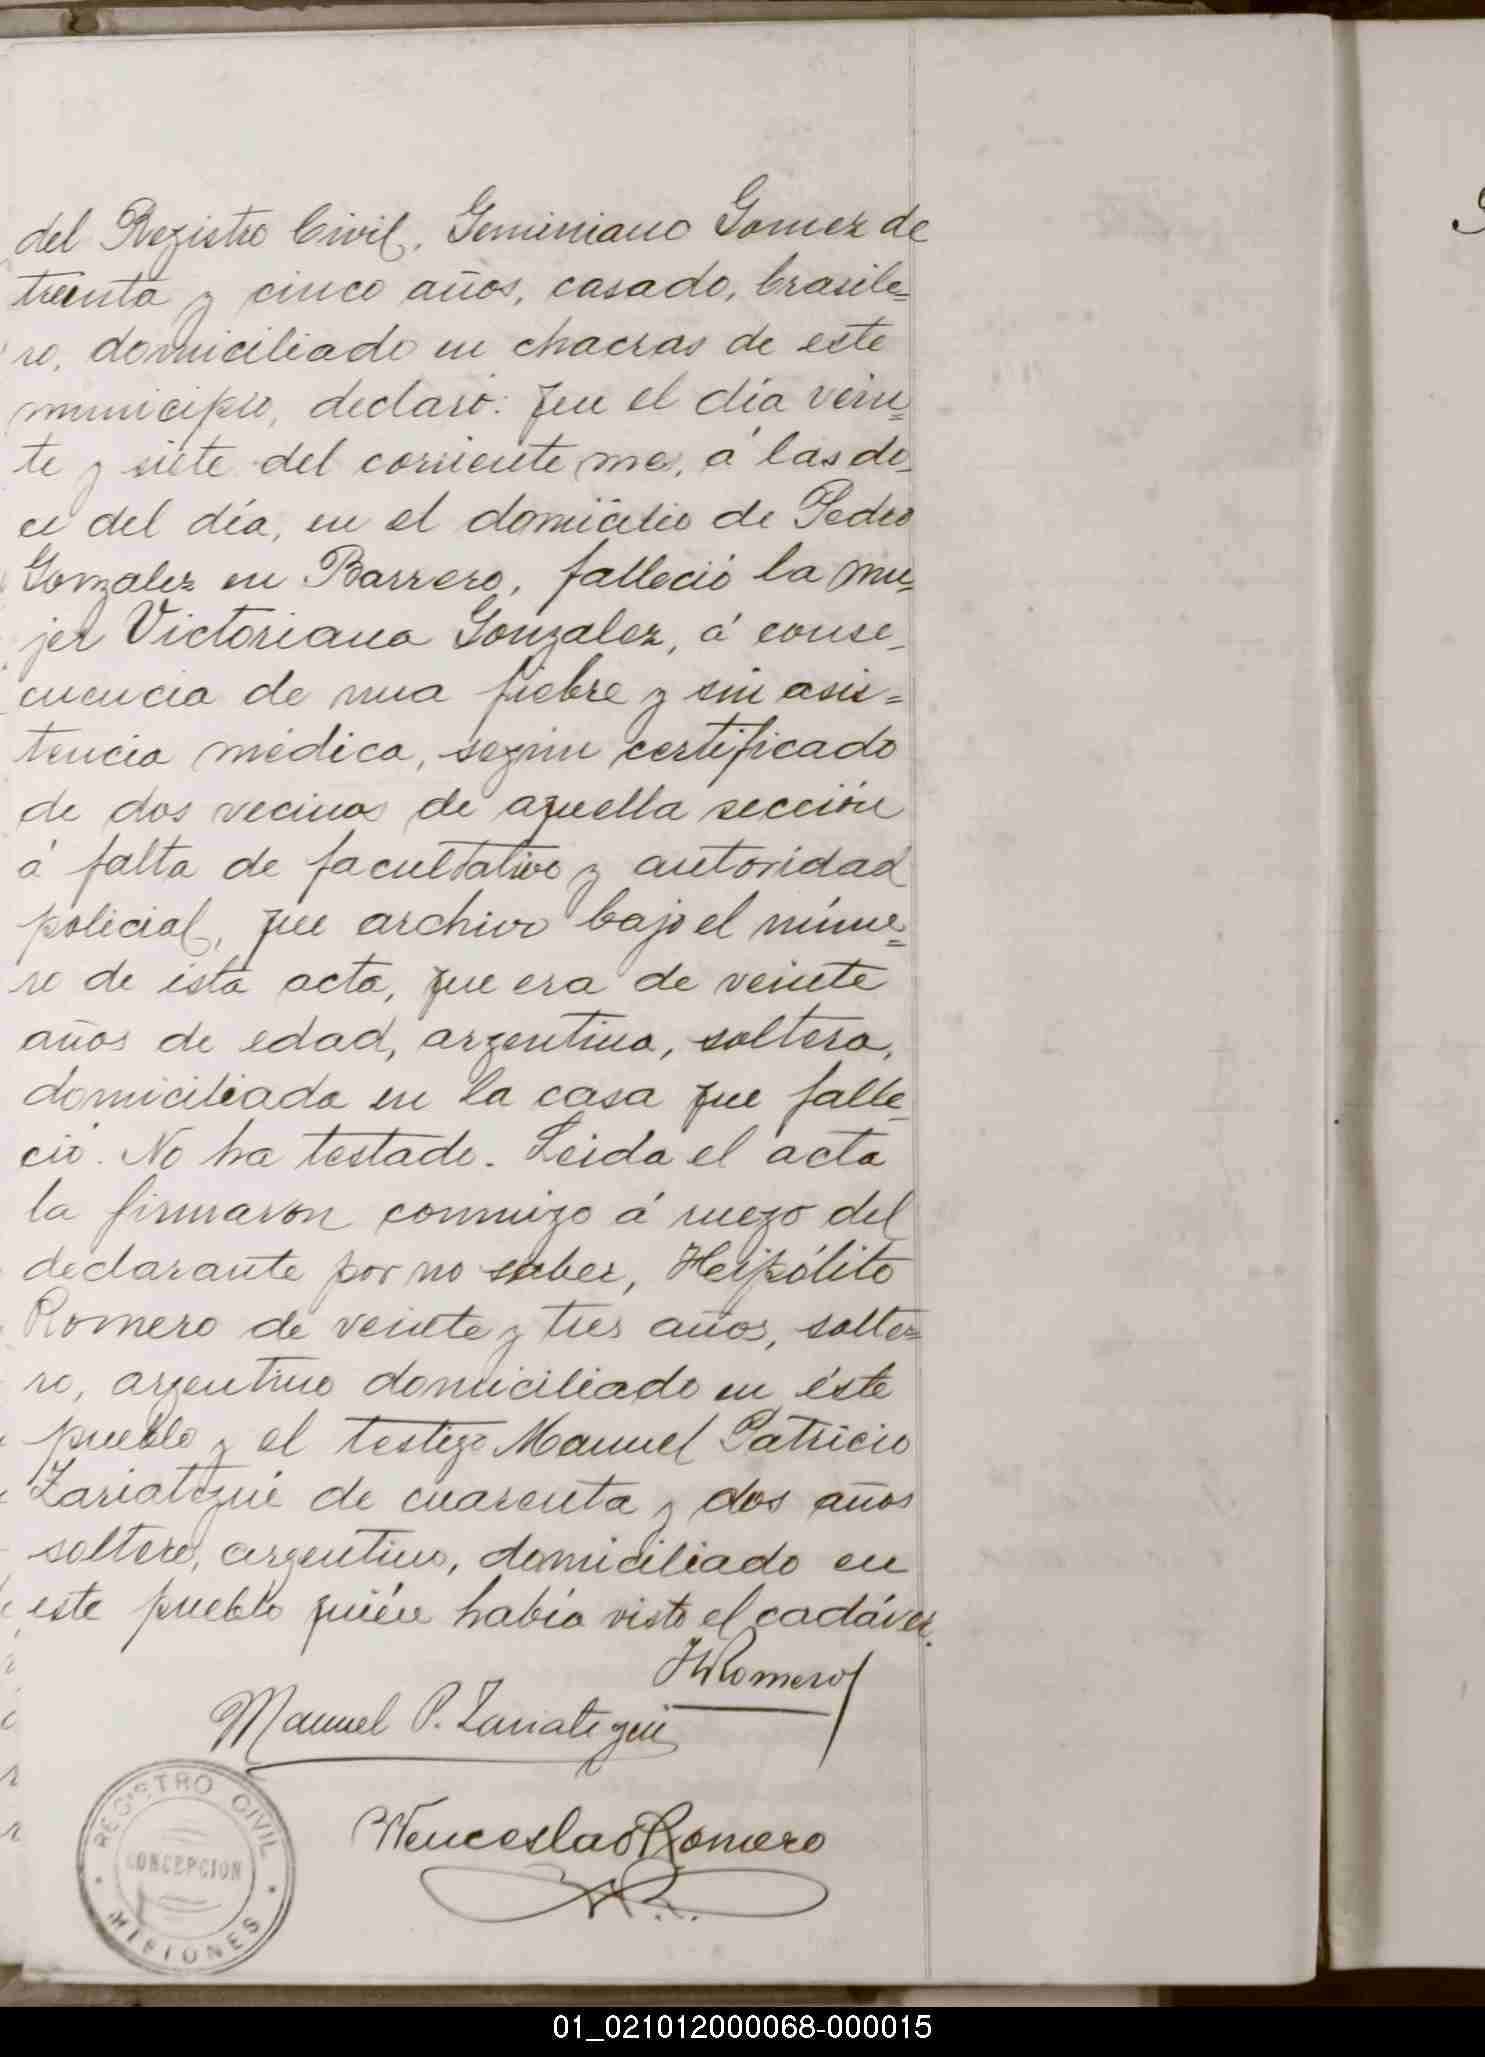 del Registro Civil, Geminiano Gomez de
treinta y cinco años, casado, brasile=
ro, domiciliado en chacras de este
municipio, declaró: que el día vein=
te y siete del corriente mes, á las do-
ce del día, en el domicilio de Pedro
Gonzalez en Barrero, falleció la mu-
jer Victoriana Gonzalez, á conse-
cuencia de una fiebre y sin asis=
tencia médica, según certificado
de dos vecinos de aquella sección
á falta de facultativo y autoridad
policial, que archivo bajo el núme=
ro de ésta acta, que era de veinte
años de edad, argentina, soltera,
domiciliada en la casa que falle-
ció. No ha testado. Leida el acta
la firmaron conmigo á ruego del
declarante por no saber, Heipólito
Romero de veinte y tres años, solte=
ro, argentino domiciliado en éste
pueblo y el testigo Manuel Patricio
Zariategui de cuarenta y dos años
soltero, argentino, domiciliado en
este pueblo quién había visto el cadáver.
HRomero
Manuel P. Zariategui
Wenceslao Romero
REGISTRO CIVIL
CONCEPCION
MISIONES
01_021012000068-000015